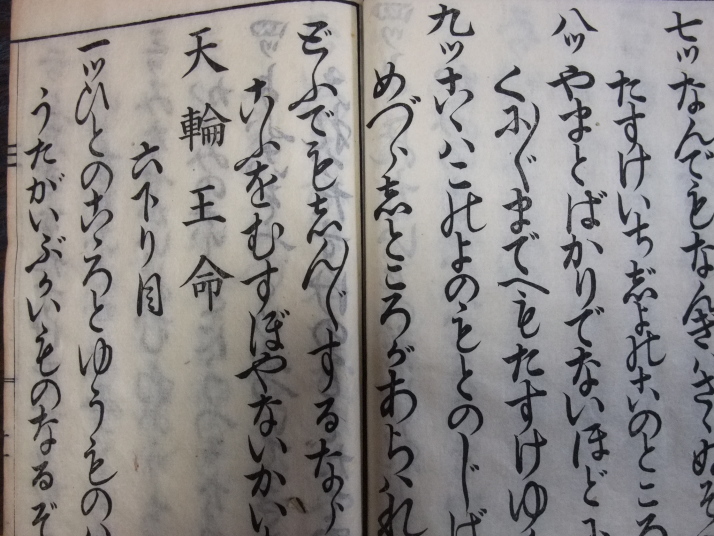 七ツなんでもなんぎハさゝぬぞ
たすけいちじよのこのところ
八ツやまとばかりでないほどに
くに／＼までへもたすけゆく
九ツこゝハこのよのもとのじば
めづらしところがあらハれた
どふでもしん／＼するならバ
かふをむすぼやないかいな
天輪王命
六下り目
一ツひとのこゝろとゆうものハ
うたがいぶかいものなるぞ